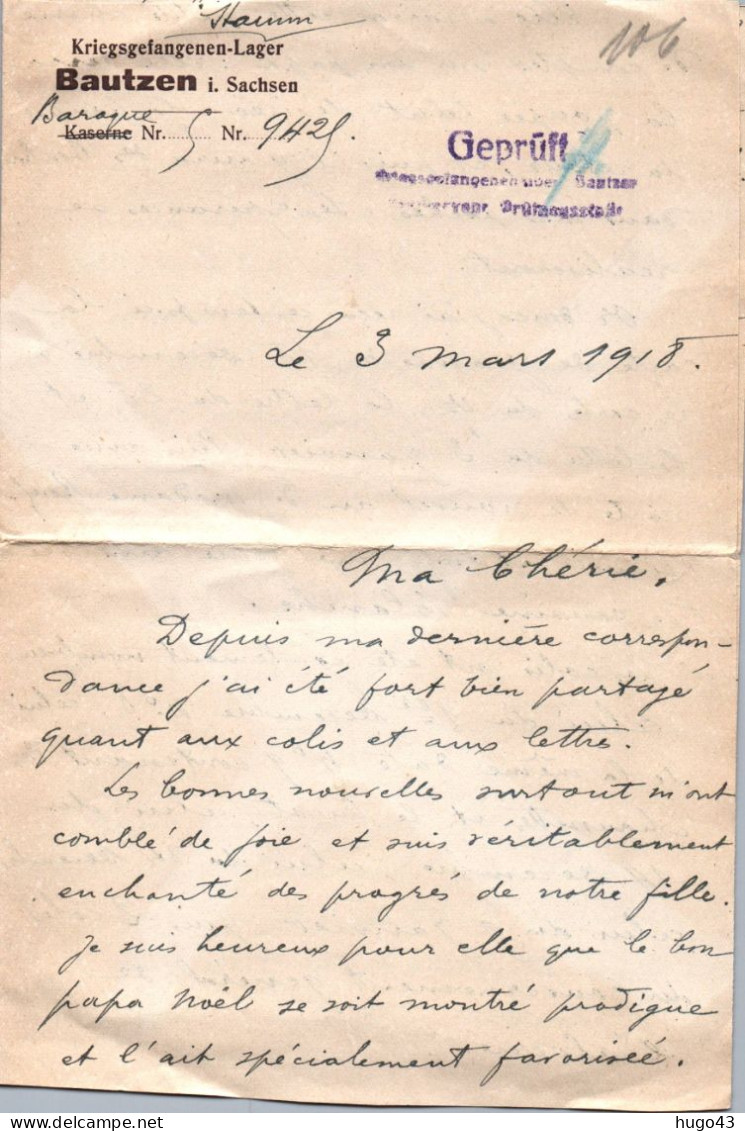 Stamm
106
Kriegsgefangenen-Lager
Bautzen i. Sachsen
Baraque
Kaserne Nr. 5 Nr. 9425.
Geprüft
Kriegsgefangenen Bautzen
Prüfungsstelle
Le 3 mars 1918.
Ma Chérie,
Depuis ma dernière correspon-
dance j'ai été fort bien partagé
quant aux colis et aux lettres.
Les bonnes nouvelles surtout m'ont
comblé de joie et suis véritablement
enchanté des progrés de notre fille.
Je suis heureux pour elle que le bon
papa Noël se soit montré prodigue
et l'ait spécialement favorisée.
hugo43